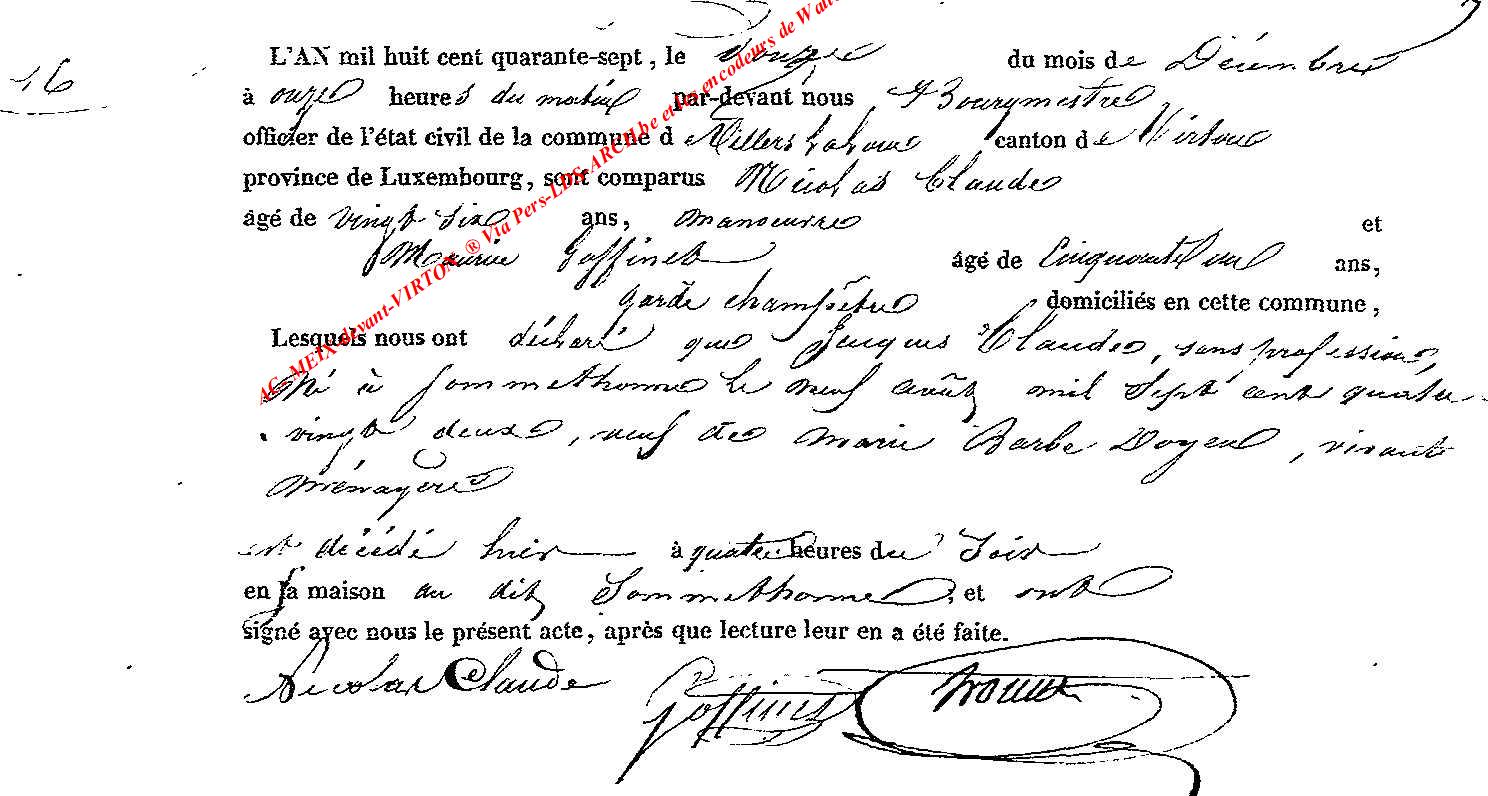 L'AN mil huit cent quarante-sept, le onze du mois de Décembre
16
à onze heures du matin par-devant nous Bourgmestre
officier de l'état civil de la commune de Villers la loue canton de Virton
province de Luxembourg, sont comparus Nicolas Claude
âgé de vingt six ans, manoeuvre et
Maurice Goffinet âgé de Cinquante un ans,
garde champêtre domiciliés en cette commune,
Lesquels nous ont déclaré que Jacques Claude, sans profession,
Né à Sommethonne le neuf août mil sept cent quatre
vingt deux, veuf de Marie Barbe Doyen, vivante
Ménagère
est décédé hier à quatre heures du Soir
en sa maison au dit Sommethonne, et ont
signé avec nous le présent acte, après que lecture leur en a été faite.
Nicolas Claude Goffinet
AC-MEIX-devant-VIRTON ® Via Pers-LDS-ARCH.be et les encodeurs de